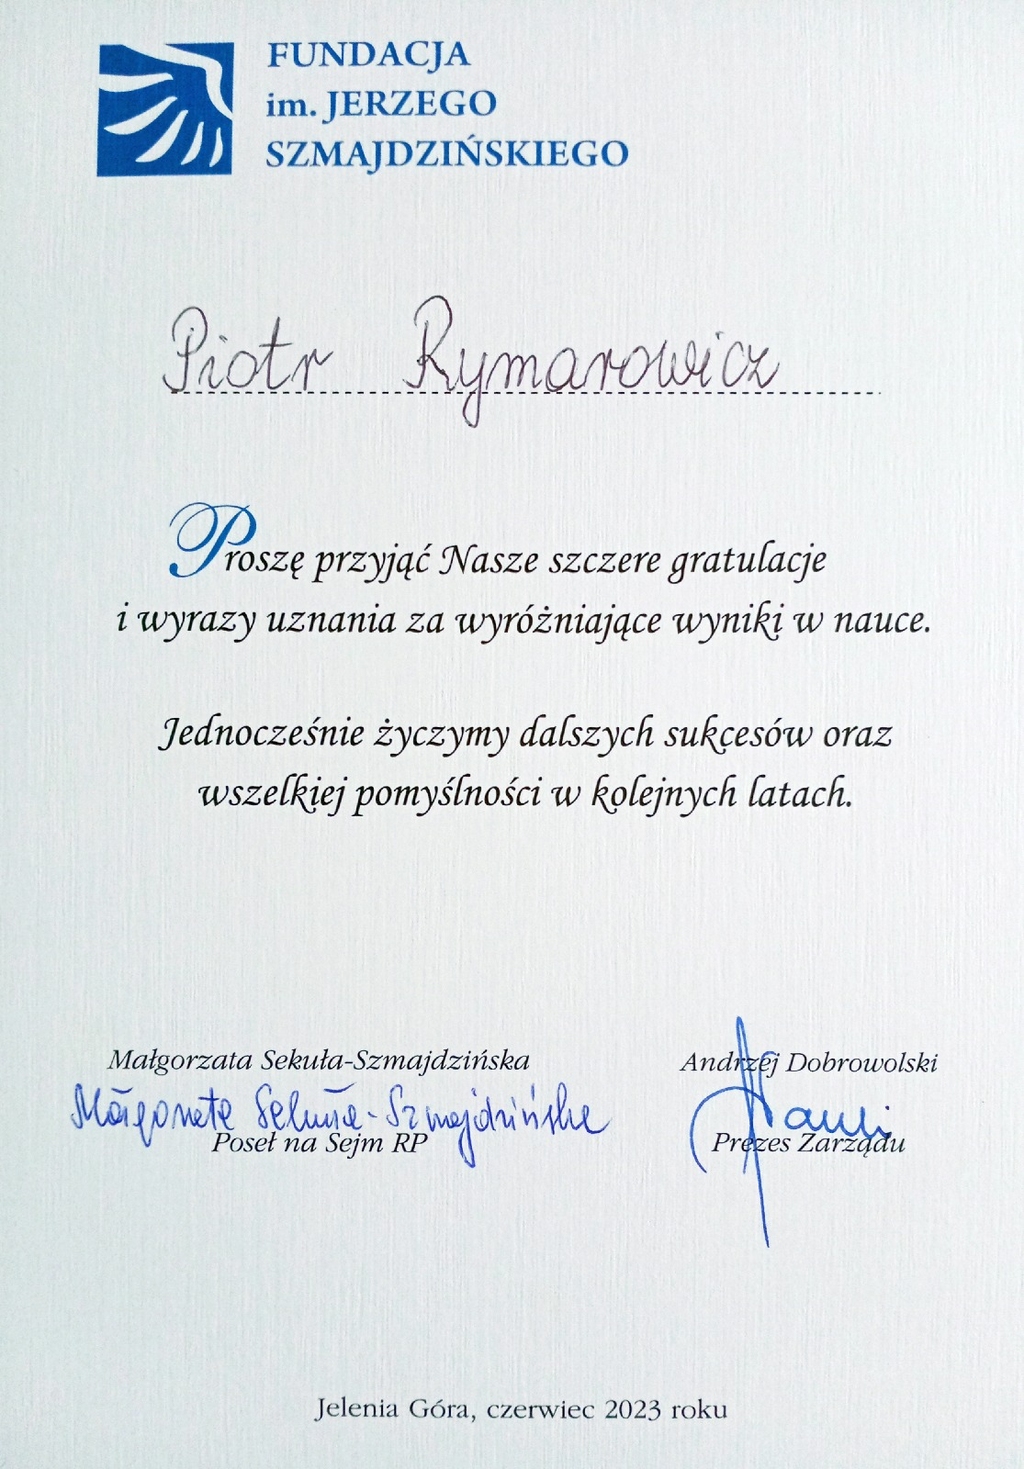 FUNDACJA
im. JERZEGO
SZMAJDZIŃSKIEGO
Piotr Rymarowicz
Proszę przyjąć Nasze szczere gratulacje
i wyrazy uznania za wyróżniające wyniki w nauce.
Jednocześnie życzymy dalszych sukcesów oraz
wszelkiej pomyślności w kolejnych latach.
Małgorzata Sekuła-Szmajdzińska
Małgorzata Sekuła-Szmajdzińska
Poseł na Sejm RP
Andrzej Dobrowolski
Prezes Zarządu
Jelenia Góra, czerwiec 2023 roku